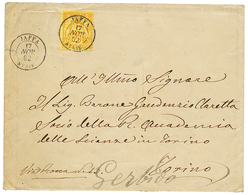 JAFFA
17
NOV
82
SYRIE
JAFFA
17
NOV
82
SYRIE
All' Illmo Signore
Il Sig. Barone Gaudenzio Claretta
Socio della R. Accademia
delle Scienze in Torino
Torino